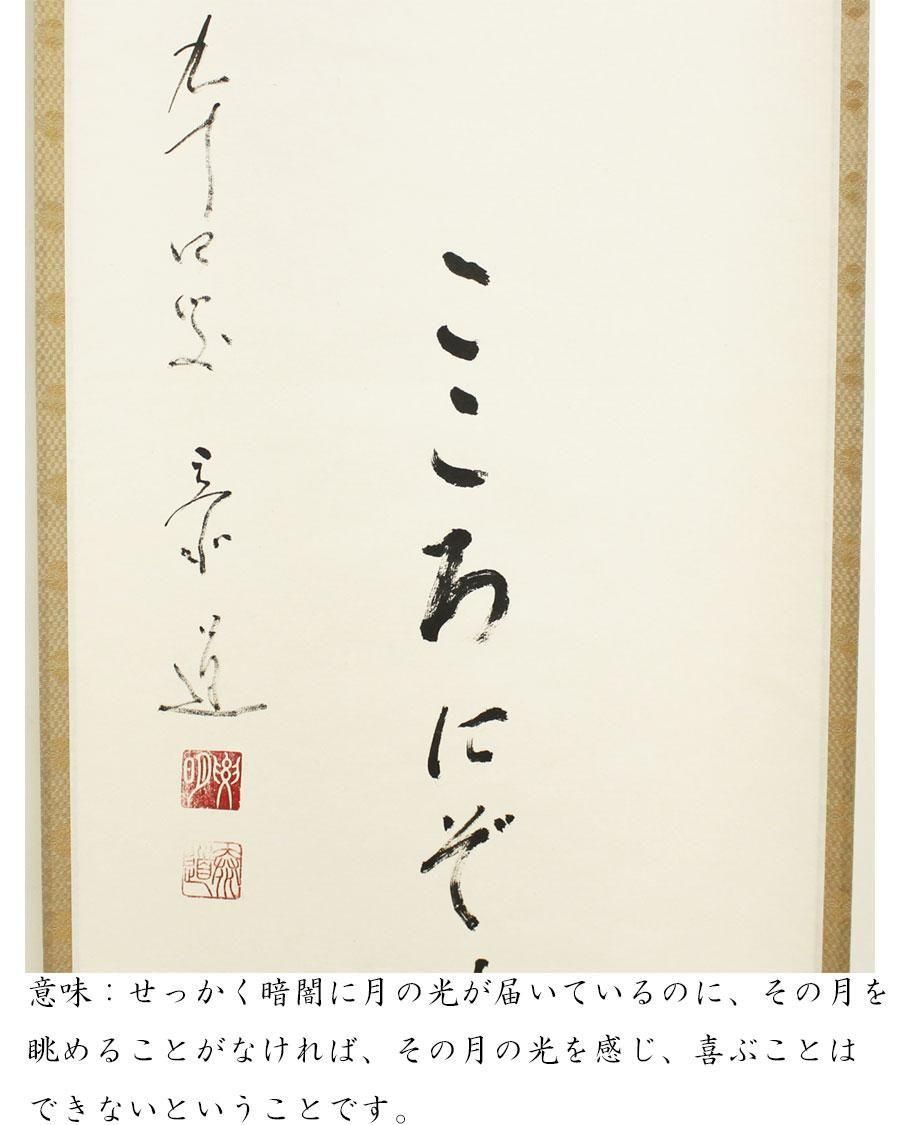 こころにぞ
九十四叟 泰道
泰道
意味：せっかく暗闇に月の光が届いているのに、その月を
眺めることがなければ、その月の光を感じ、喜ぶことは
できないということです。